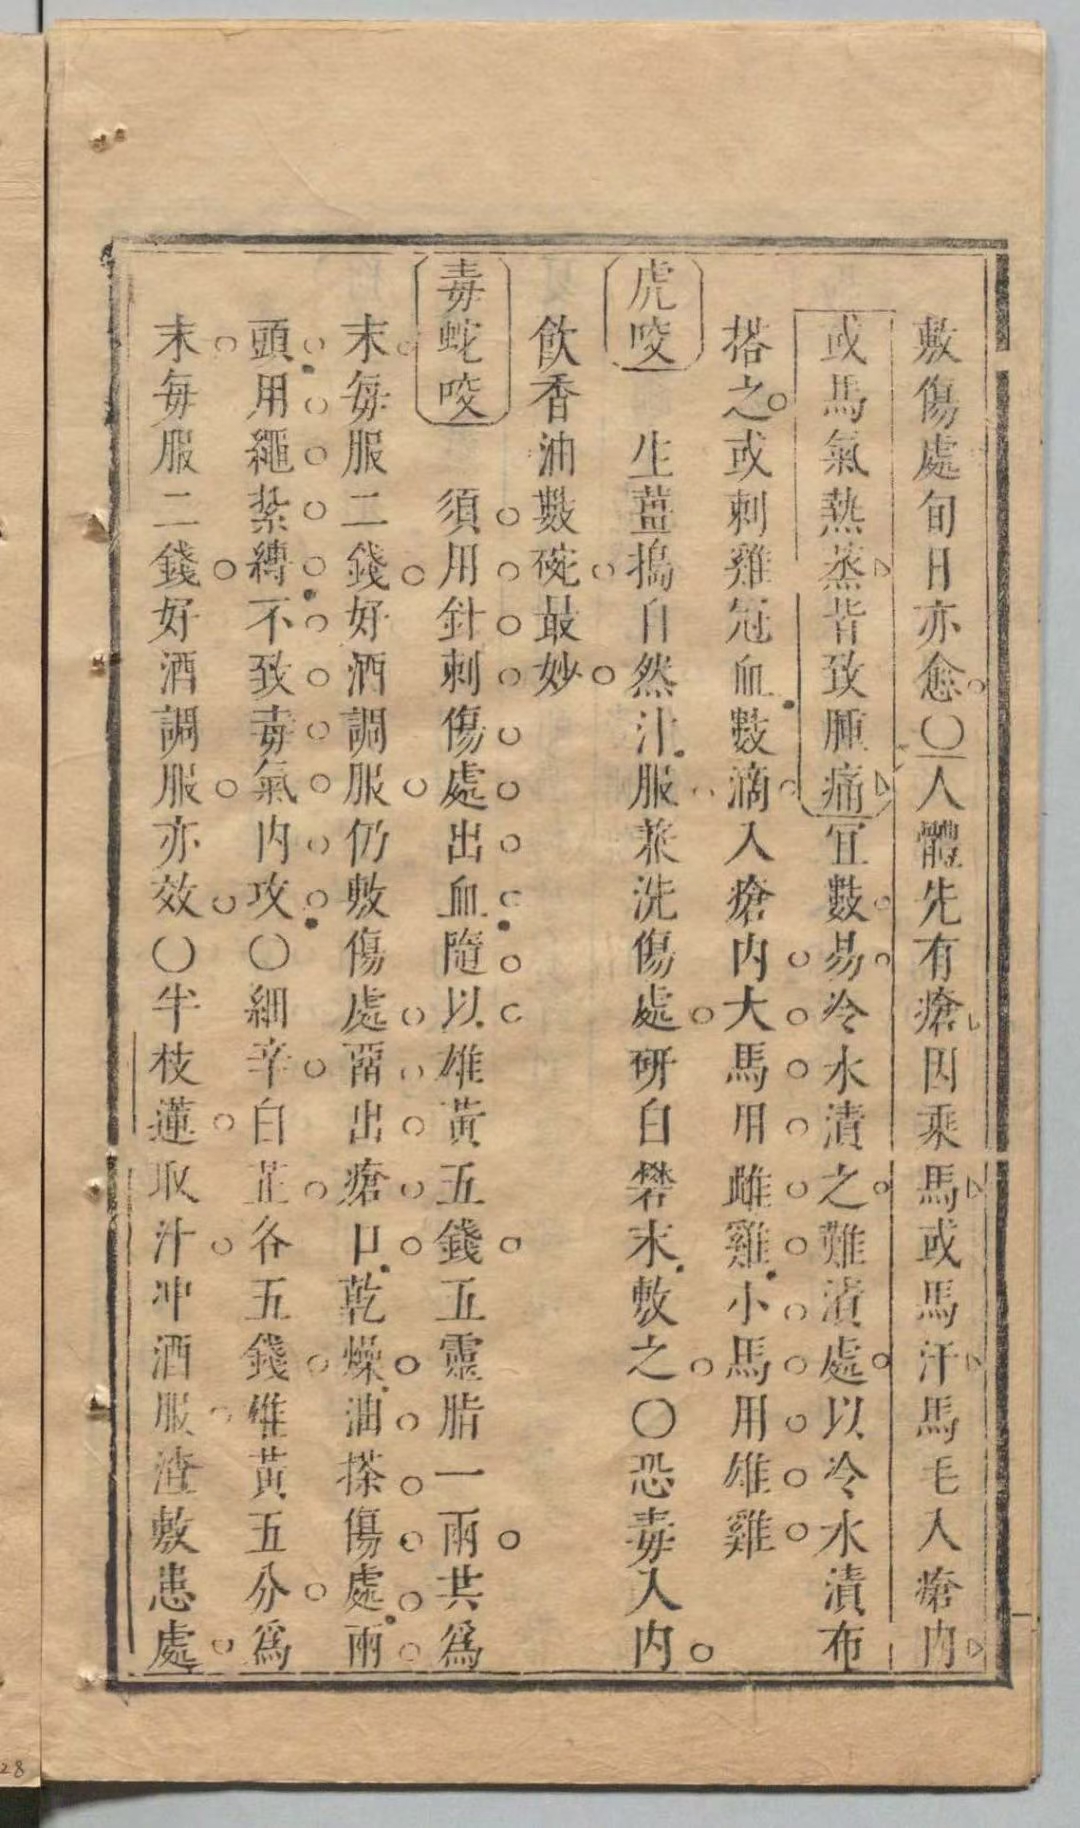 敷傷處旬日亦愈〇人體先有瘡因乘馬或馬汗馬毛入瘡內
或馬氣熱蒸皆致腫痛宜數易冷水漬之難漬處以冷水漬布
搭之或刺雞冠血數滴入瘡內大馬用雌雞小馬用雄雞
虎咬 生薑搗自然汁服兼洗傷處研白礬末敷之〇恐毒入內
飲香油數碗最妙
毒蛇咬 須用針刺傷處出血隨以雄黃五錢五靈脂一兩共為
末每服二錢好酒調服仍敷傷處畱出瘡口乾燥油搽傷處兩
頭用繩紮縛不致毒氣內攻〇細辛白芷各五錢雄黃五分為
末每服二錢好酒調服亦效〇半枝蓮取汁冲酒服渣敷患處
28